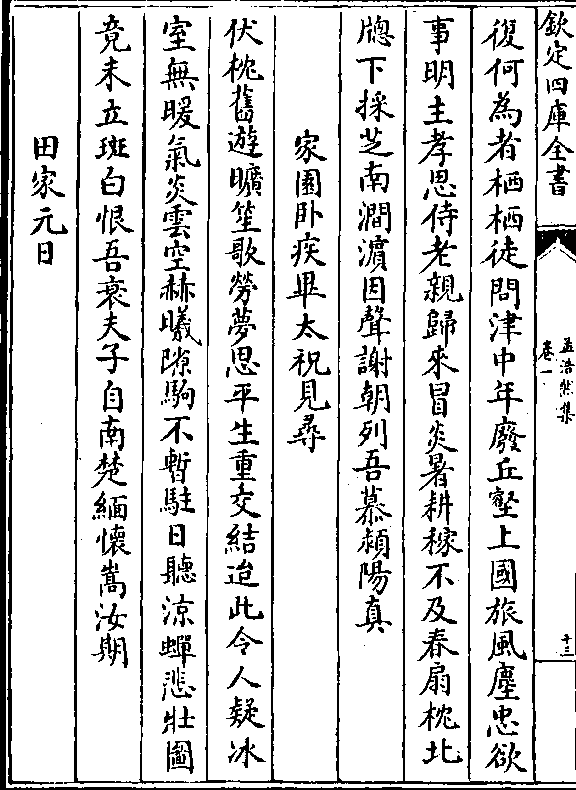 欽定四庫全書
孟浩然集
卷一
十三
復何為者栖栖徒問津中年廢丘壑上國旅風塵忠欲
事明主孝思侍老親歸來冒炎暑耕稼不及春扇枕北
牕下採芝南澗濵因聲謝朝列吾慕潁陽真
家園卧疾畢太祝見尋
伏枕舊遊曠笙歌勞夢思平生重交結迨此令人疑冰
室無暖氣炎雲空赫曦隙駒不暫駐日聽涼蟬悲壯圖
竟未立斑白恨吾衰夫子自南楚緬懷嵩汝期
田家元日